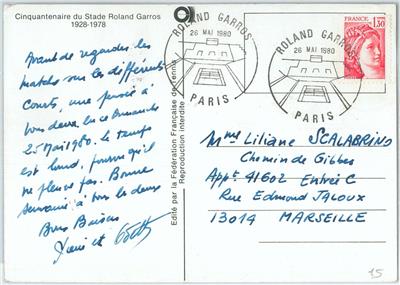 Cinquantenaire du Stade Roland Garros
1928-1978
Avant de regarder les
matchs sur les différents
courts, une pensée à
vous deux, en ce dimanche
25 Mai 1980. le temps
est lourd, pourvu qu'il
ne pleuve pas. Bonne
semaine à tous les deux
Bons Baisers
et
Edité par la Fédération Française de Tennis
Reproduction interdite
ROLAND GARROS
26 MAI 1980
PARIS
ROLAND GARROS
26 MAI 1980
PARIS
FRANCE
1,30
Mme Liliane SCALABRINO
Chemin de Gibbes
Appt 41602 Entrée C
Rue Edmond JALOUX
13014 MARSEILLE
15